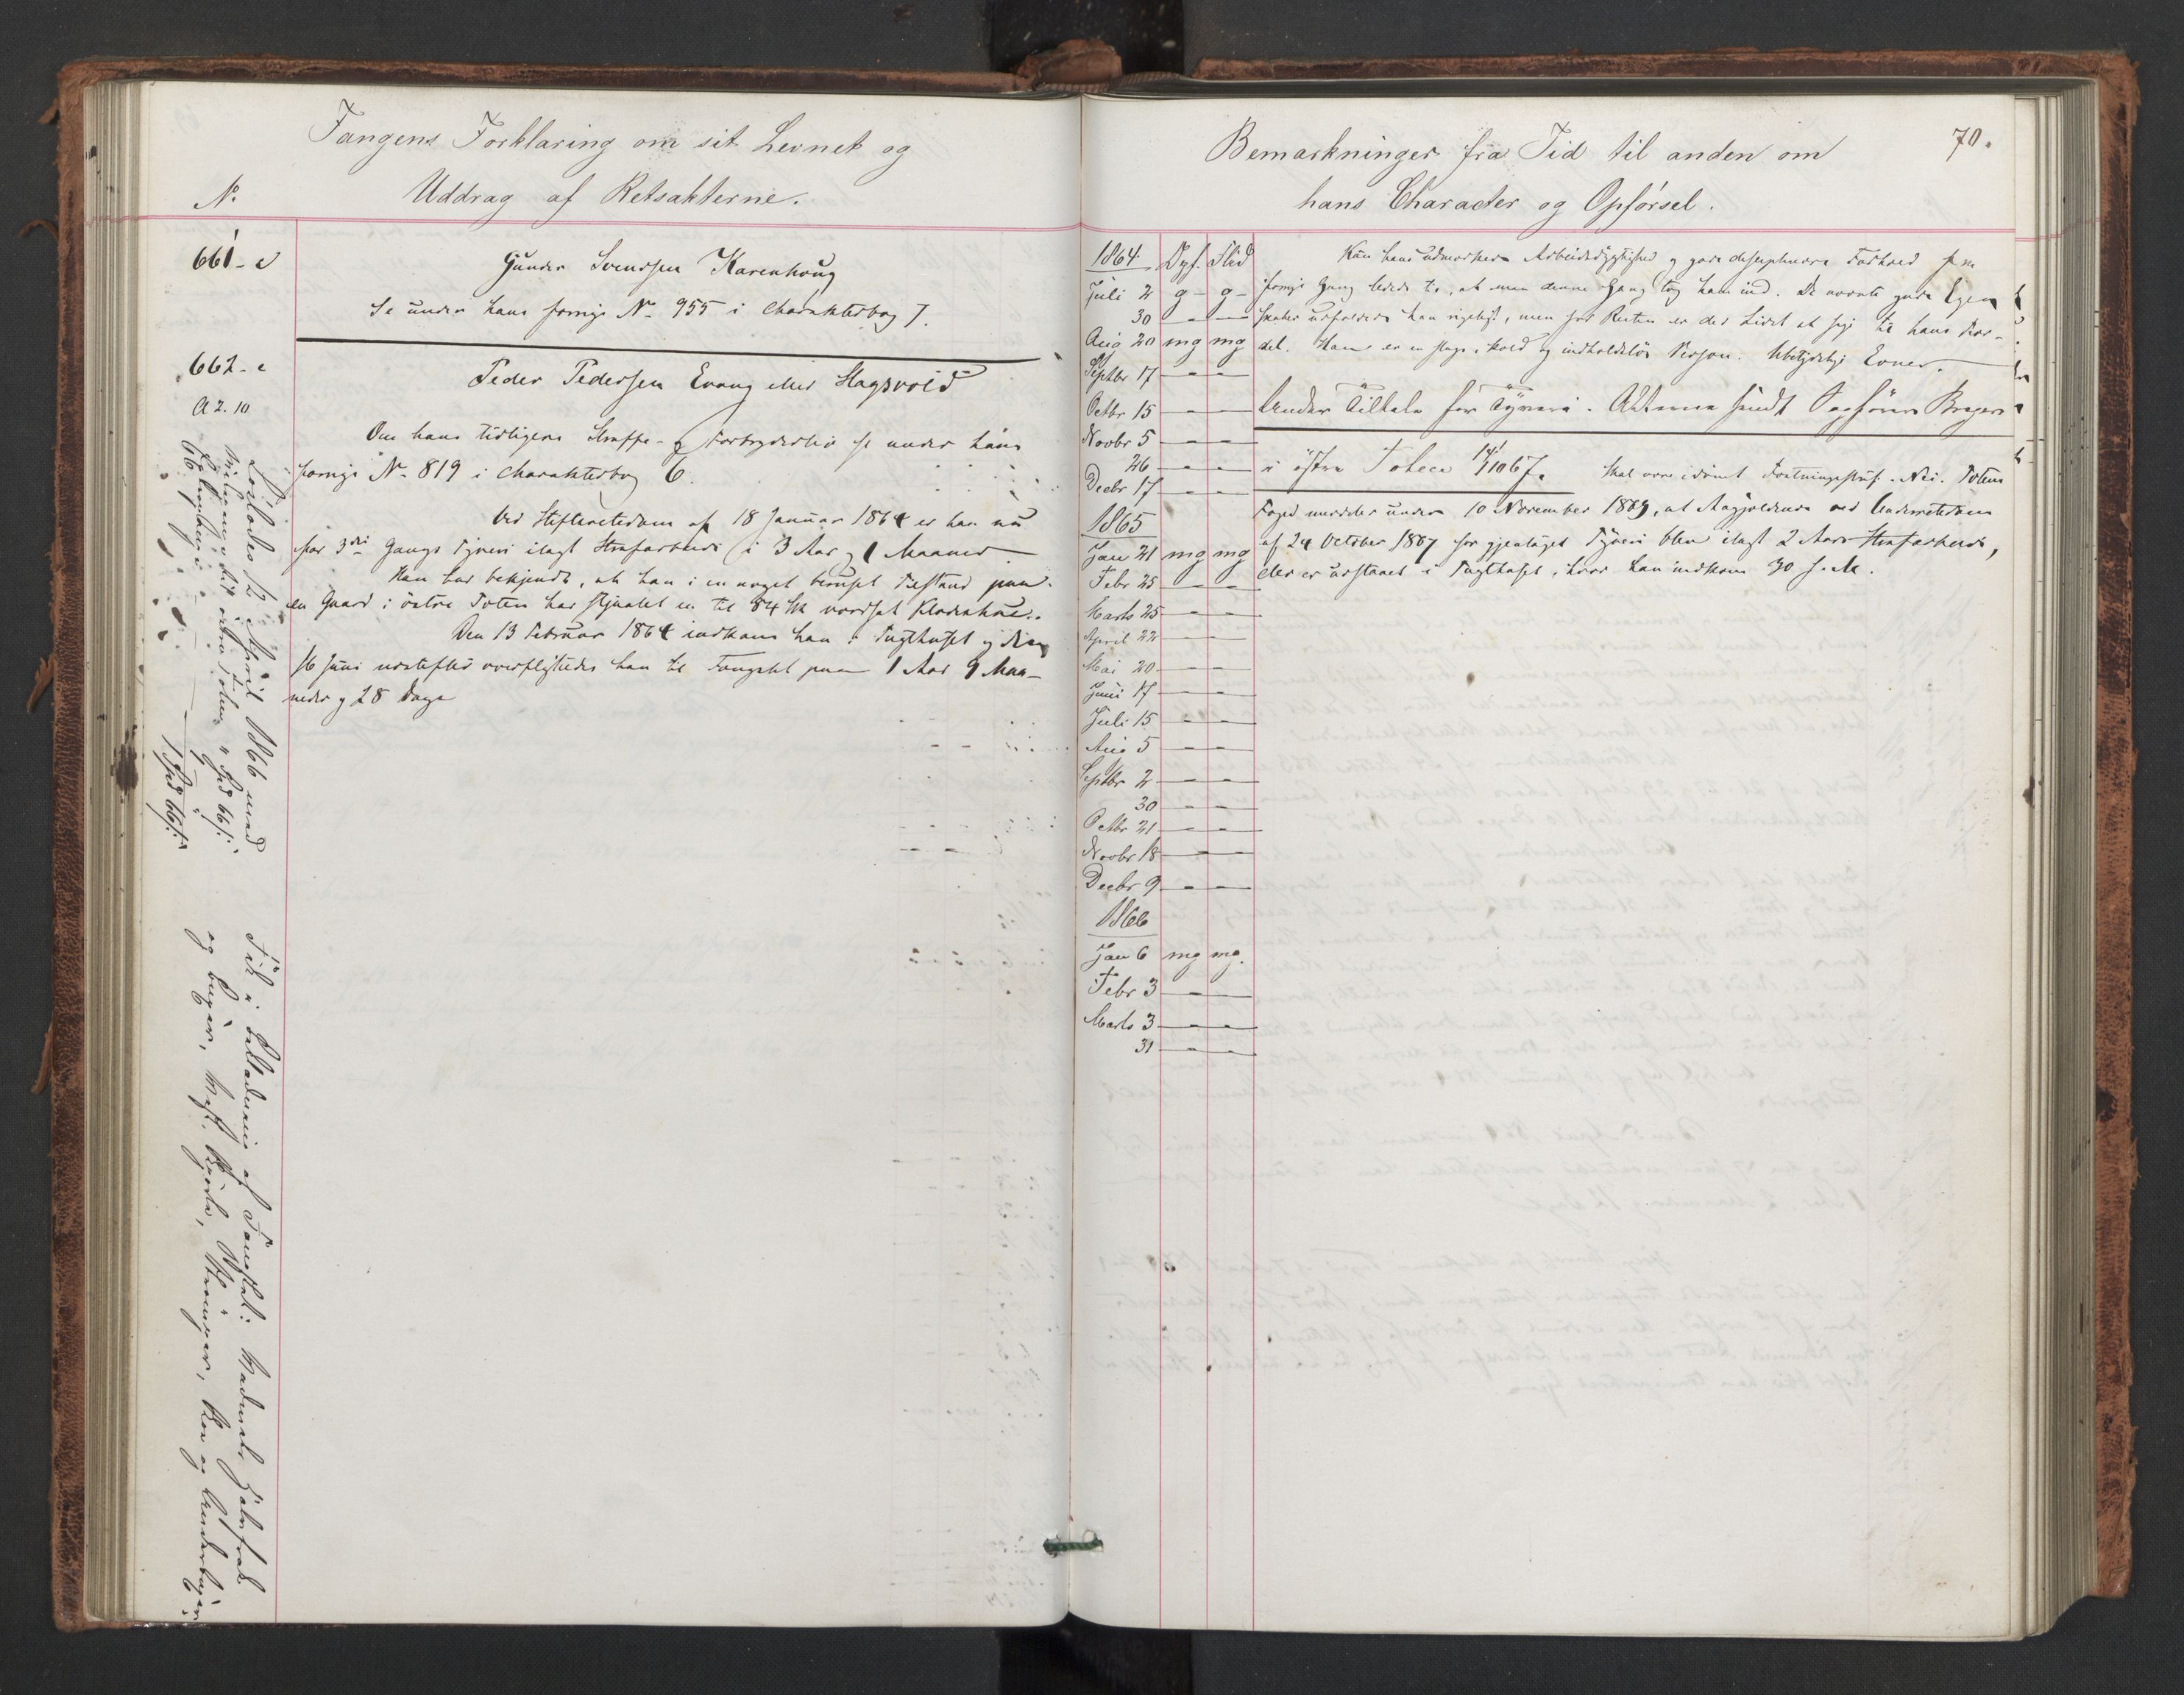 Fangens Forklaring om sit Levnet og
Uddrag af Retsakterne.
No
661-e
Gunder Svendsen Karenhoug
Se under hans forrige No 955 i Charakterbog 7.
662-e
A 2.10
Peder Pedersen Evang eller Hagsvold
Om hans tidligere Straffe- og Forbryderliv se under hans
forrige No 819 i Charakterbog 6.
Ved Stiftsretsdom af 18 Januar 1864 er han nu
for 3die Gangs Tyveri ilagt Strafarbeide i 3 Aar og 1 Maaned
Han har bekjendt, at han i en noget beruset Tilstand paa
en Gaard i östre Toten har stjaalet en til 84 sk vordsat Klædeshue.
Den 13 Februar 1864 indkom han i Tugthuset og den
16 Juni næstefter overflyttedes han til Fængslet paa 1 Aar 9 Maa-
neder og 28 Dage
Løslades 12 April 1866 med
Fik i Beklædning af Fængslet: Vadmels
og Buxer, Vest, Skjorte, Strömper, Sko og Underbuxer
Bemærkninger fra Tid til anden om
hans Character og Opførsel.
70.
1864 Opf. Flid
Juli 2 g- g-
30 - -
Aug 20 mg mg
Septbr 17 - -
Octbr 15 - -
Novbr 5 - -
26 - -
Decbr 17 - -
1865
Jan 21 mg mg
Febr 25 - -
Marts 25 - -
April 22 - -
Mai 20 - -
Juni 17 - -
Juli 15 - -
Aug 5 - -
Septbr 2 - -
30 - -
Octbr 21 - -
Novbr 18 - -
Decbr 9 - -
1866
Jan 6 mg mg.
Febr 3 - -
Marts 3 - -
31 - -
Kun hans udmærkede Arbeidsdygtighed og gode disciplinære Forhold fra
forrige Gang ledede til, at man denne Gang tog ham ind. De nævnte gode Egen
skaber udfoldede han rigeligt, men for Resten er der Lidet at sige til hans For-
del. Han er en slags kold og indholdslös Person. Ubetydelige Evner.
Under Tiltale for Tyveri. Akterne sendt Sagförer Brager
i östre Toten 14/11 067. Skal være idömt
Foged melder under 10 November 1869, at Angjeldende ved Underretsdom
af 24 October 1867 for gjentaget Tyveri blev ilagt 2 Aars Strafarbeide,
der er udstaaet i Tugthuset, hvor han indkom 30 s. M.